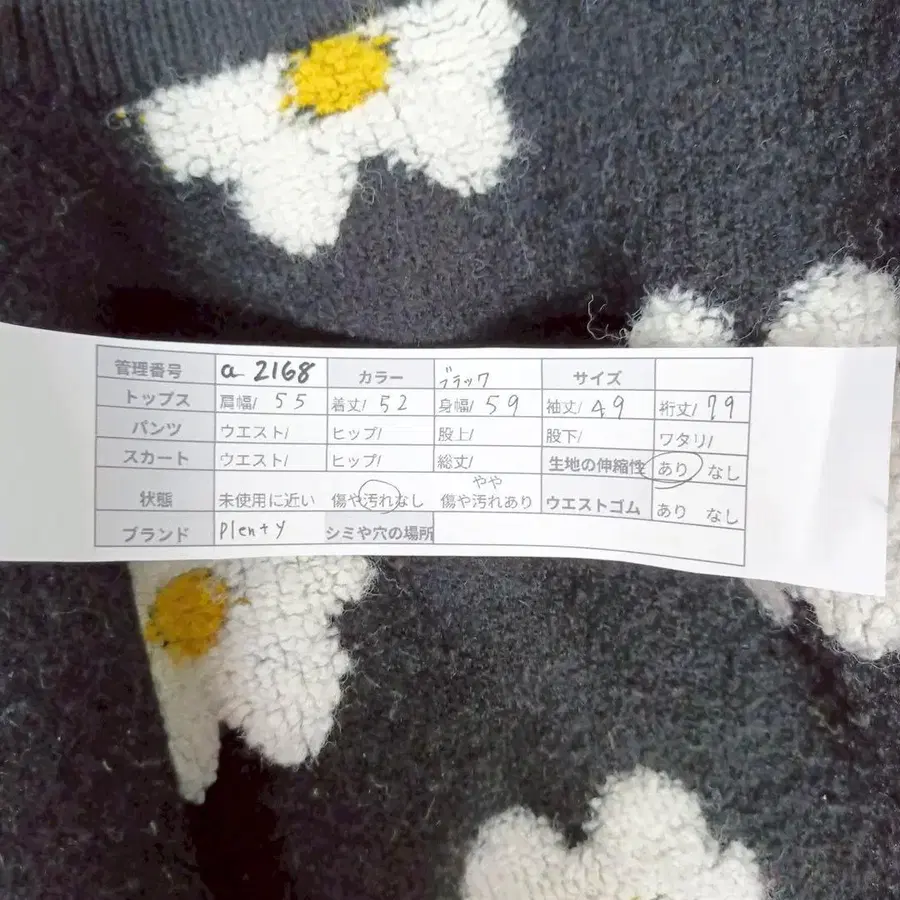 管理番号 a 2168 カラー ブラック サイズ
トップス 肩幅/ 55 着丈/ 52 身幅/ 59 袖丈/ 49 裄丈/ 79
パンツ ウエスト/ ヒップ/ 股上/ 股下/ ワタリ/
スカート ウエスト/ ヒップ/ 総丈/ 生地の伸縮性 あり なし
状態 未使用に近い 傷や汚れなし やや傷や汚れあり ウエストゴム あり なし
ブランド plenty シミや穴の場所